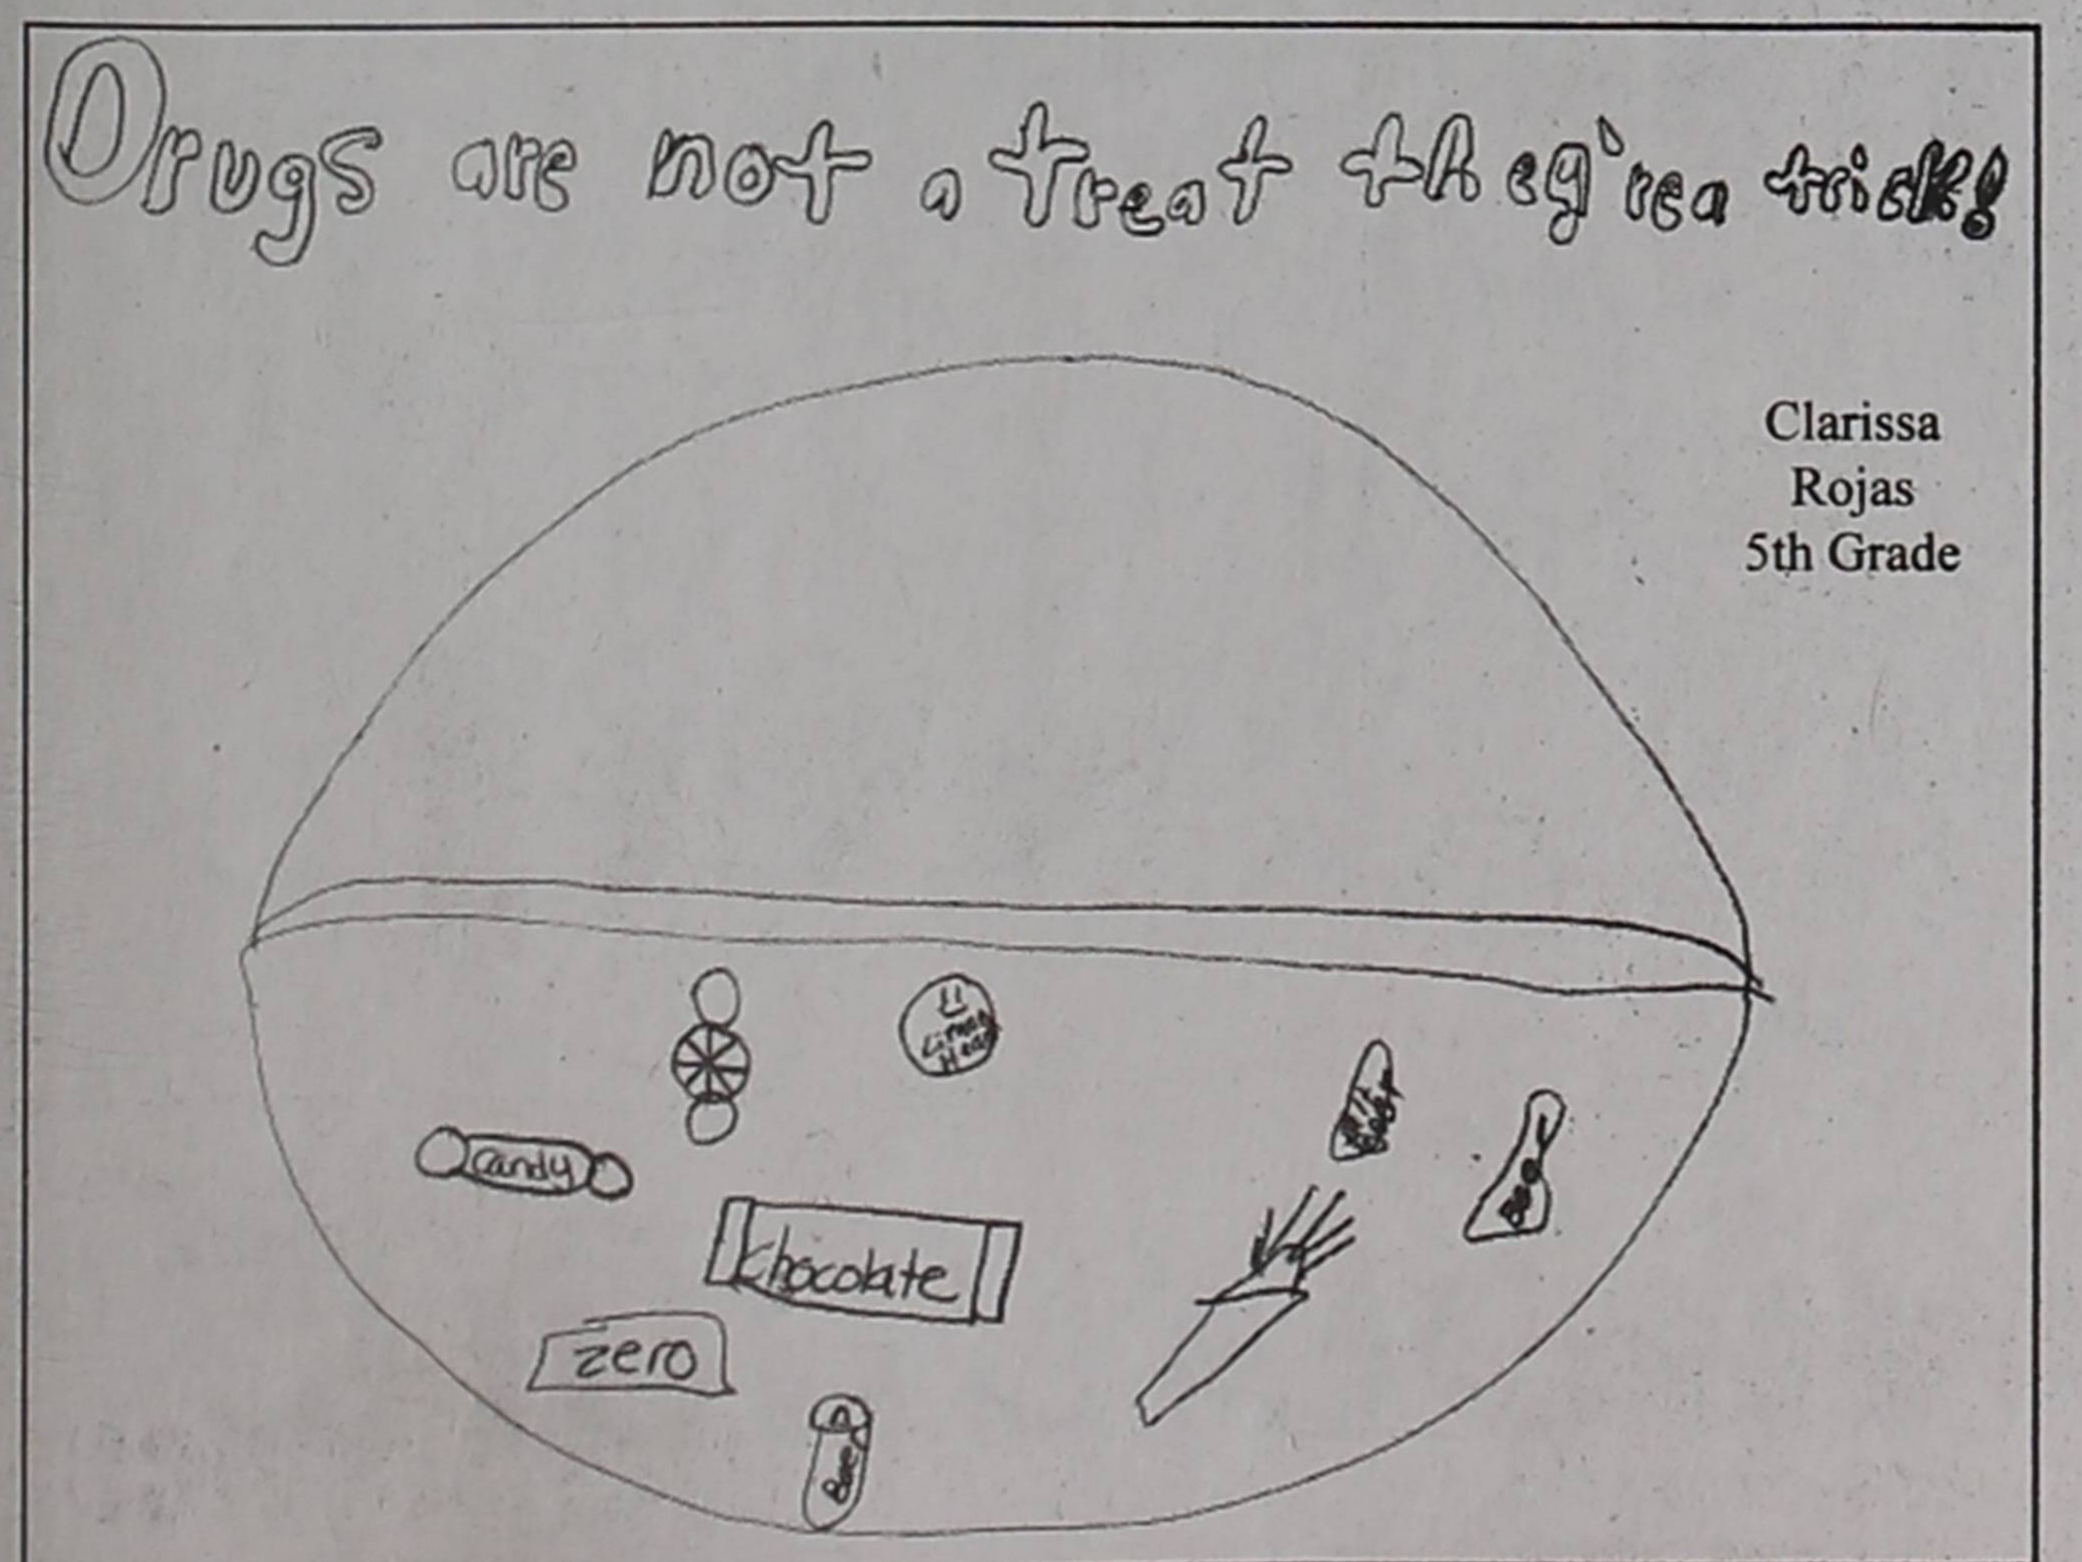 Drugs are not a treat they're a trick!
Clarissa
Rojas
5th Grade
candy
chocolate
zero